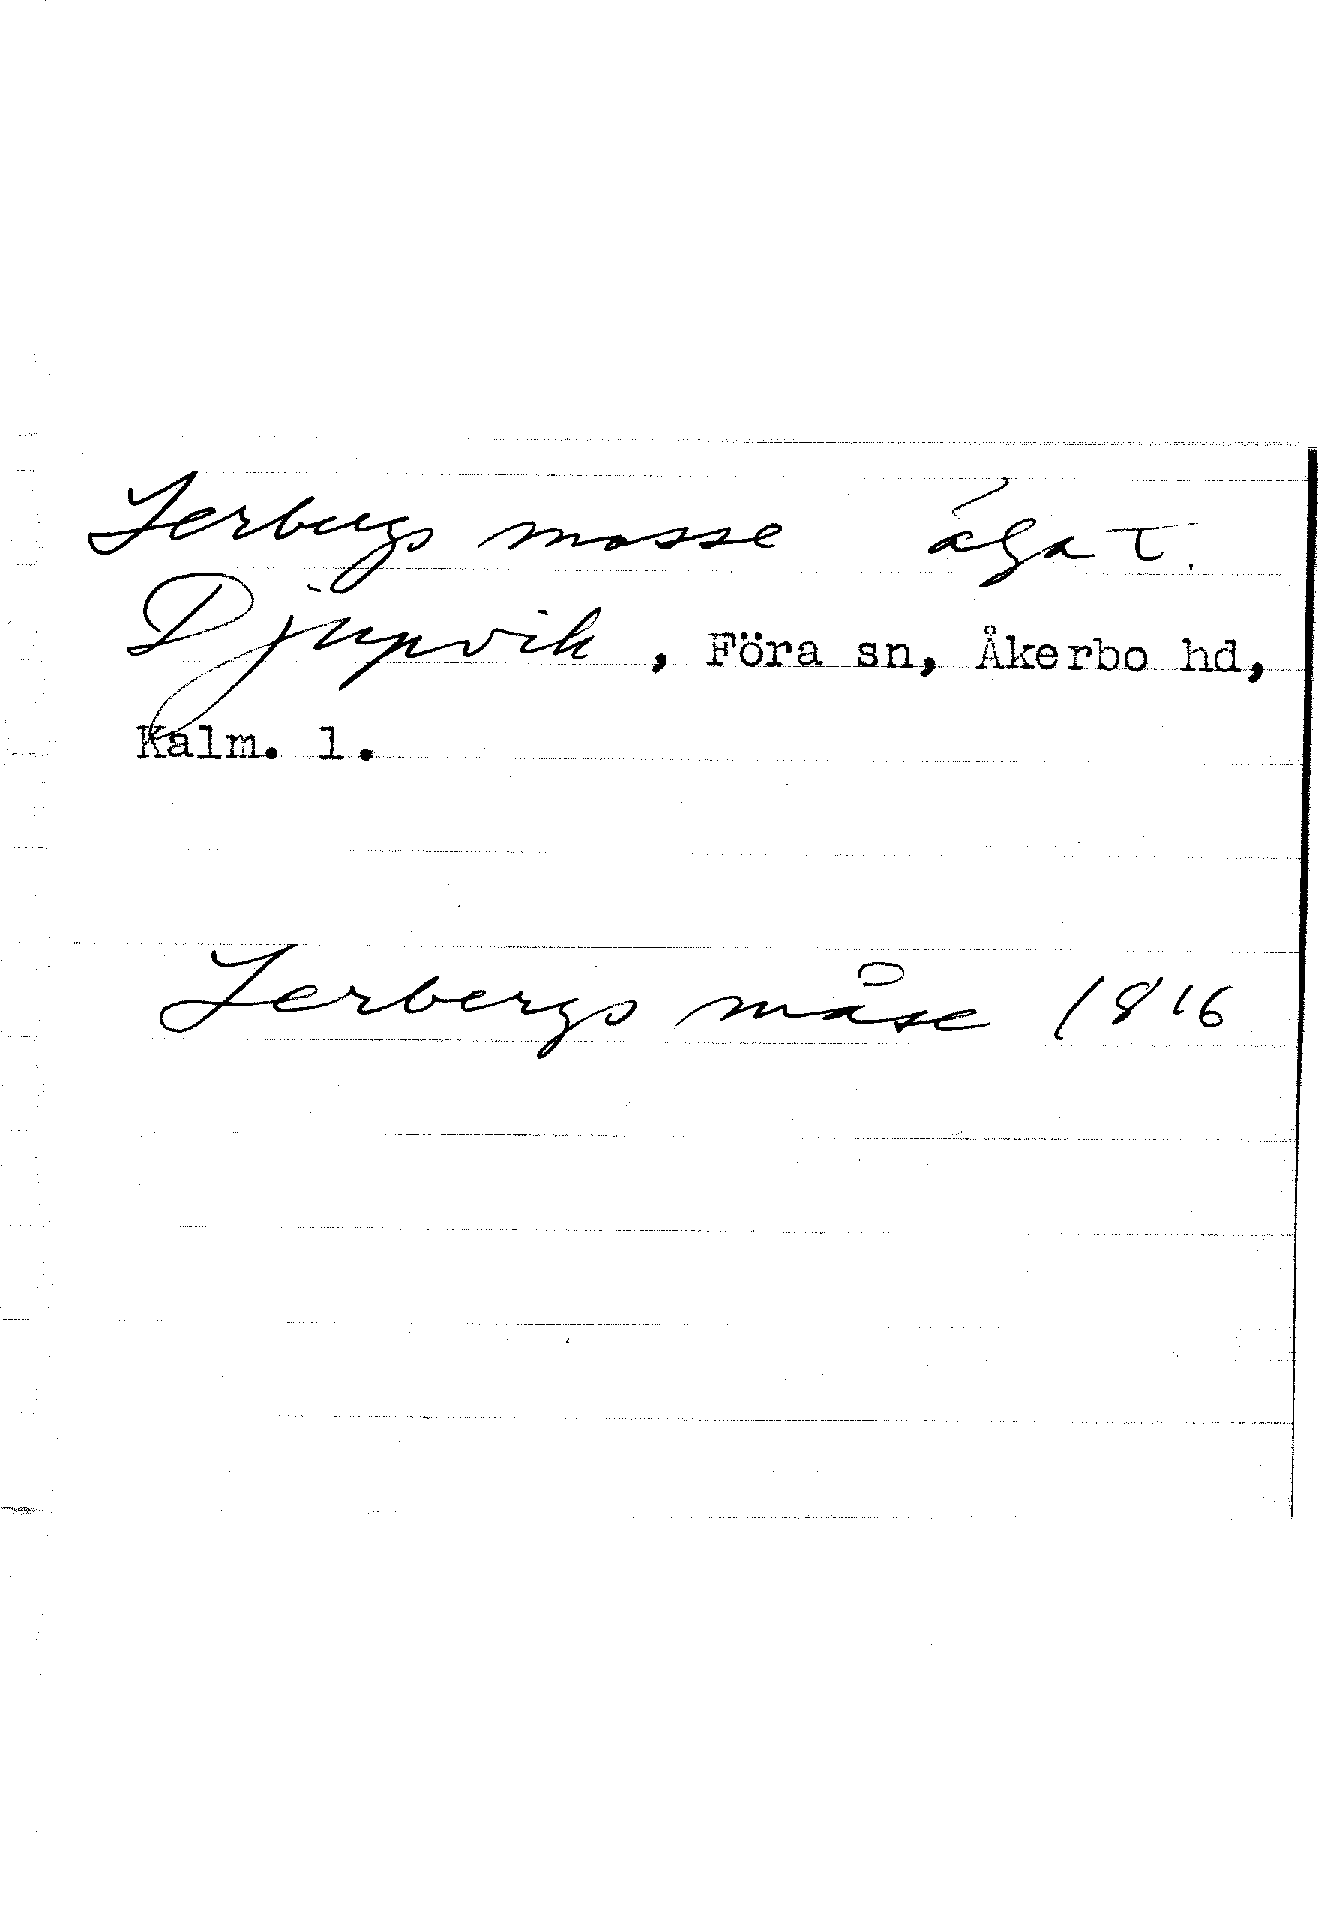 Jerbergs mosse äga t.
Djupvik, Föra sn, Åkerbo hd,
Kalm. l.
Jerbergs måse 1816